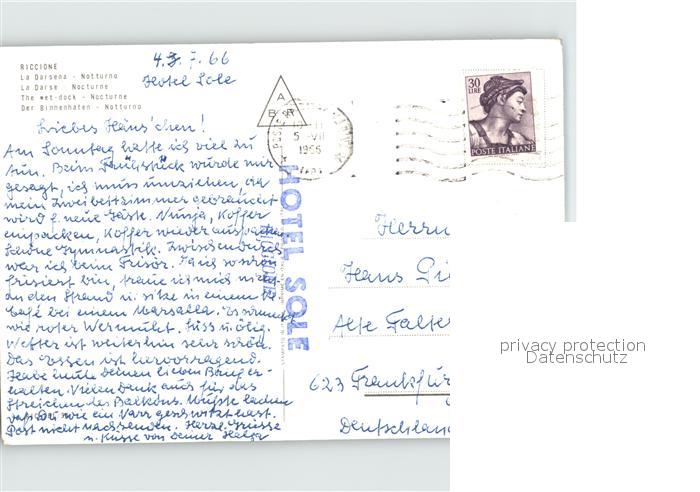 RICCIONE
La Darsena - Notturno
La Darse - Nocturne
The wet-dock - Nocturne
Der Binnenhafen - Notturno
4. 7. 66
Hotel Sole
A
B
5 - VII
1966
30
LIRE
POSTE ITALIANE
Liebes Häns'chen!
Am Sonntag hatte ich viel zu
tun. Beim Frühstück wurde mir
gesagt, ich muss umziehen, da
mein Zweibettzimmer gebraucht
wird f. neue Gäste. Nunja, Koffer
einpacken, Koffer wieder auspacken
Schöne Gymnastik. Zwischendurch
war ich beim Frisör. Da ich so schön
frisiert bin, traue ich mich nicht
an den Strand u. sitze in einem
Café bei einem Marsalla. Es schmeckt
wie roter Wermuht. Süss u. ölig.
Wetter ist weiterhin sehr schön.
Das Essen ist hervorragend.
Habe heute Deinen lieben Brief er-
halten. Vielen Dank auch für das
Streichen des Balkons. Musste lachen
dass Du wie ein Narr geschwitzt hast.
Post nicht nachsenden. Herzl. Grüsse
u. Küsse von Deiner Helga
HOTEL SOLE
RICCIONE
Herrn
Hans
Alte
623 Frankfur
Deutschland
privacy protection
Datenschutz